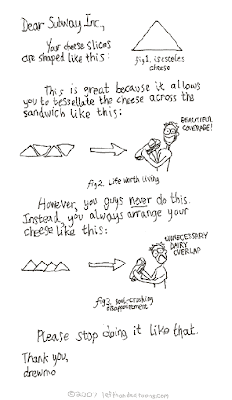 Dear Subway Inc,
Your cheese slices
are shaped like this:
fig 1. isosceles
cheese
This is great because it allows
you to tessellate the cheese across the
sandwich like this:
BEAUTIFUL
COVERAGE!
fig 2. Life worth living
However, you guys never do this.
Instead, you always arrange your
cheese like this:
UNNECESSARY
DAIRY
OVERLAP
fig 3. soul-crushing
disappointment
Please stop doing it like that.
Thank you,
drewmo
©2007 lefthandedtoons.com